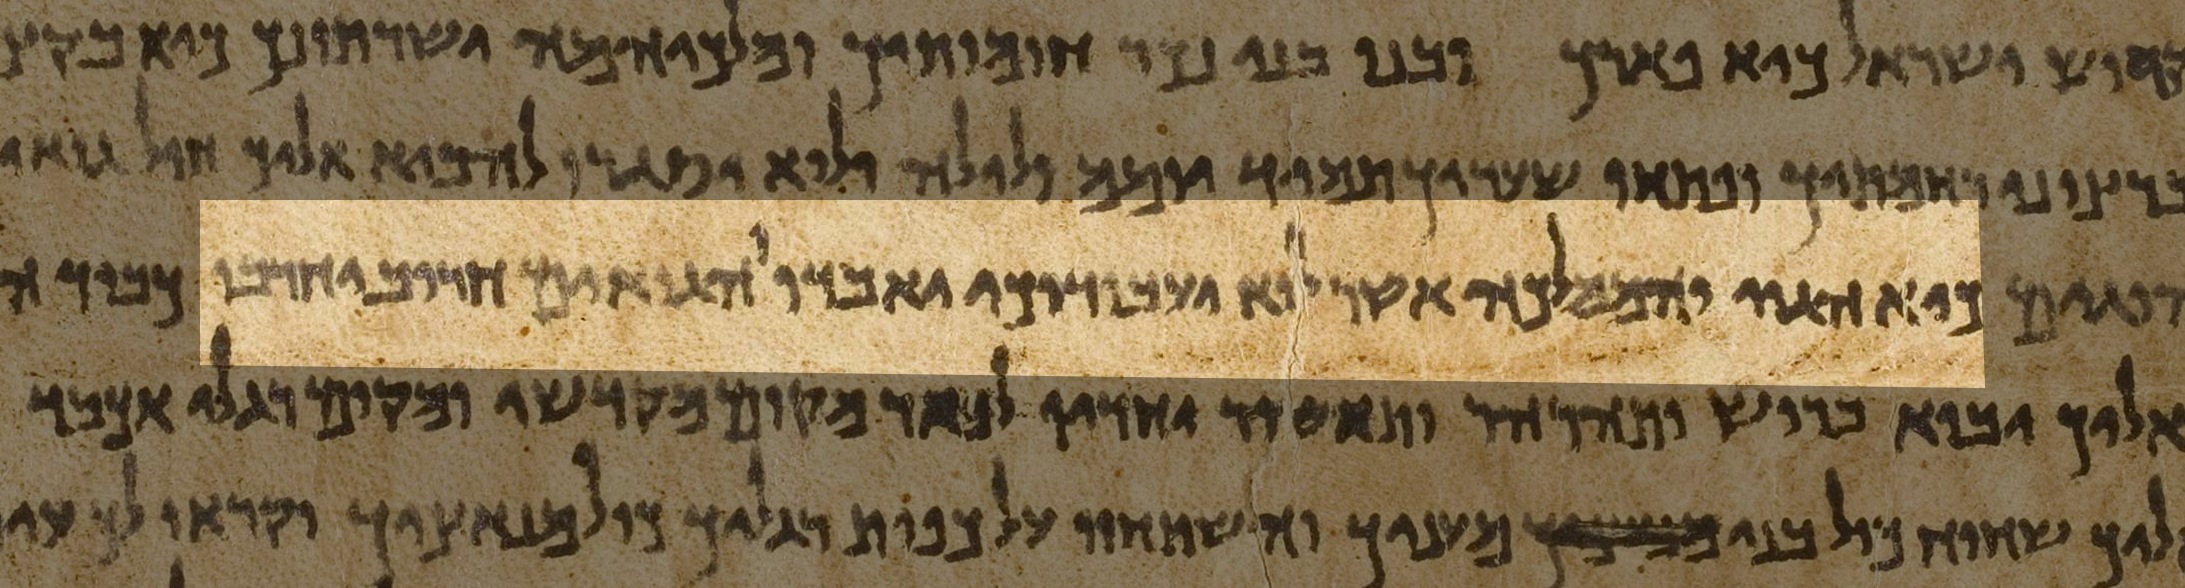 קדוש ישראל כיא פארך ובנו בני נכר חומותיך ומלכיהמה ישרתונך כיא בקצ
ברצוני רחמתיך ופתחו שעריך תמיד יומם ולילה ולוא יסגרו להביא אליך חיל גואי
כיא הגוי והממלכה אשר לוא יעבודוכי יאבדו והגואים חרוב יחרבו כבוד ה
אליך יבוא ברוש ותהרהר ותאשור יחדיו לפאר מקום מקדשי ומקום רגלי אכבד
אליך שחוח כול בני מעניך והשתחוו על כפות רגליך כול מנאציך וקראו לך עיר